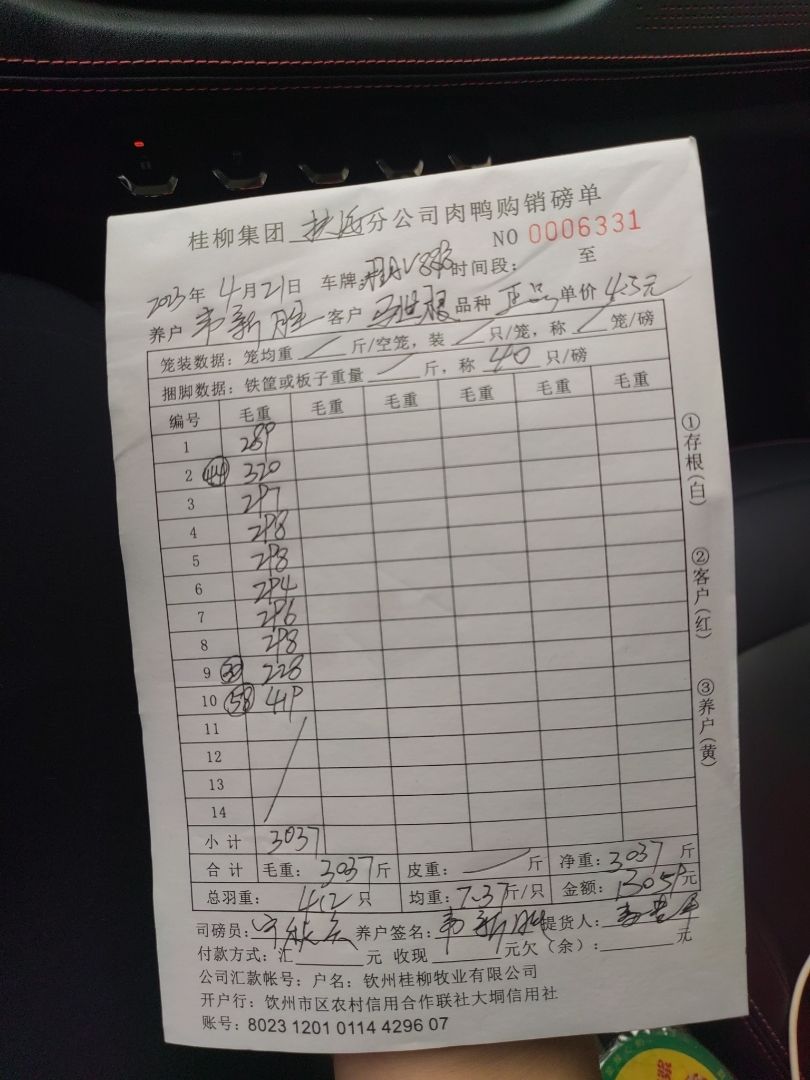 桂柳集团 分公司肉鸭购销磅单
NO 0006331
2023年 4月21日 车牌: 时间段: 至
养户 韦新胜 客户 马世根 品种 正品 单价 4.3元
笼装数据: 笼均重 / 斤/空笼, 装 / 只/笼, 称 / 笼/磅
捆脚数据: 铁筐或板子重量 / 斤, 称 40 只/磅
编号 毛重 毛重 毛重 毛重 毛重 毛重
1 289
2 ㊹ 320
3 297
4 298
5 298
6 294
7 296
8 298
9 ㉚ 228
10 58 419
11
12
13
14
小计 3037
合计 毛重: 3037 斤 皮重: / 斤 净重: 3037 斤
总羽重: 412 只 均重: 7.37斤/只 金额: 13059元
司磅员: 养户签名: 韦新胜 提货人:
付款方式: 汇 元 收现 元欠(余): 元
公司汇款帐号: 户名: 钦州桂柳牧业有限公司
开户行: 钦州市区农村信用合作联社大垌信用社
账号: 8023 1201 0114 4296 07
①存根(白) ②客户(红) ③养户(黄)